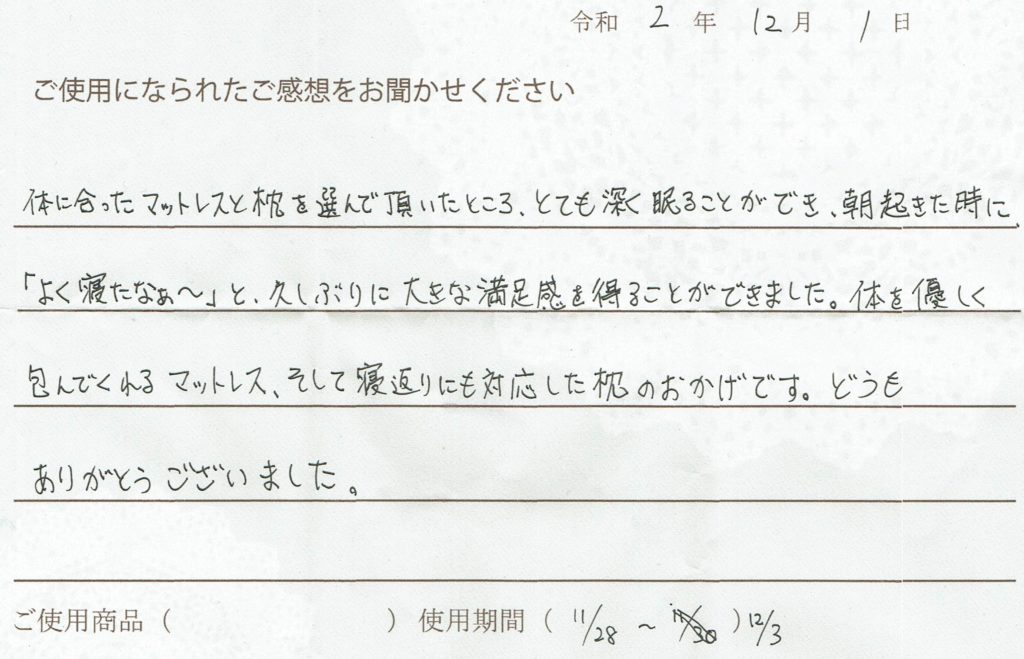 令和 2 年 12 月 1 日
ご使用になられたご感想をお聞かせください
体に合ったマットレスと枕を選んで頂いたところ、とても深く眠ることができ、朝起きた時に、
「よく寝たなぁ〜」と、久しぶりに大きな満足感を得ることができました。体を優しく
包んでくれるマットレス、そして寝返りにも対応した枕のおかげです。どうも
ありがとうございました。
ご使用商品（ ）使用期間（ 11/28 〜 11/30 ）12/3